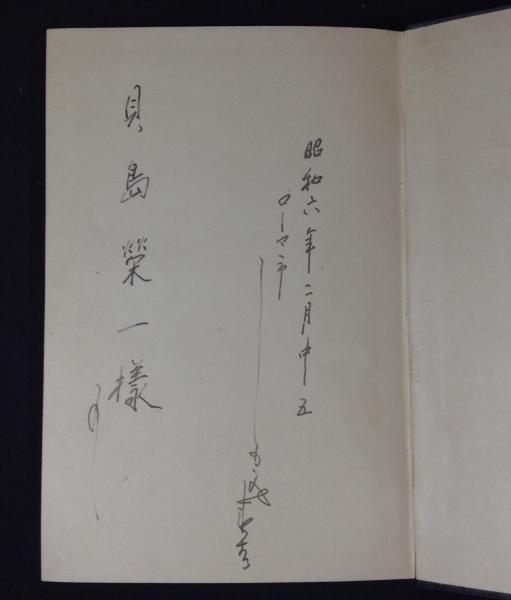 昭和六年二月中五
ローマ市
貝島榮一様